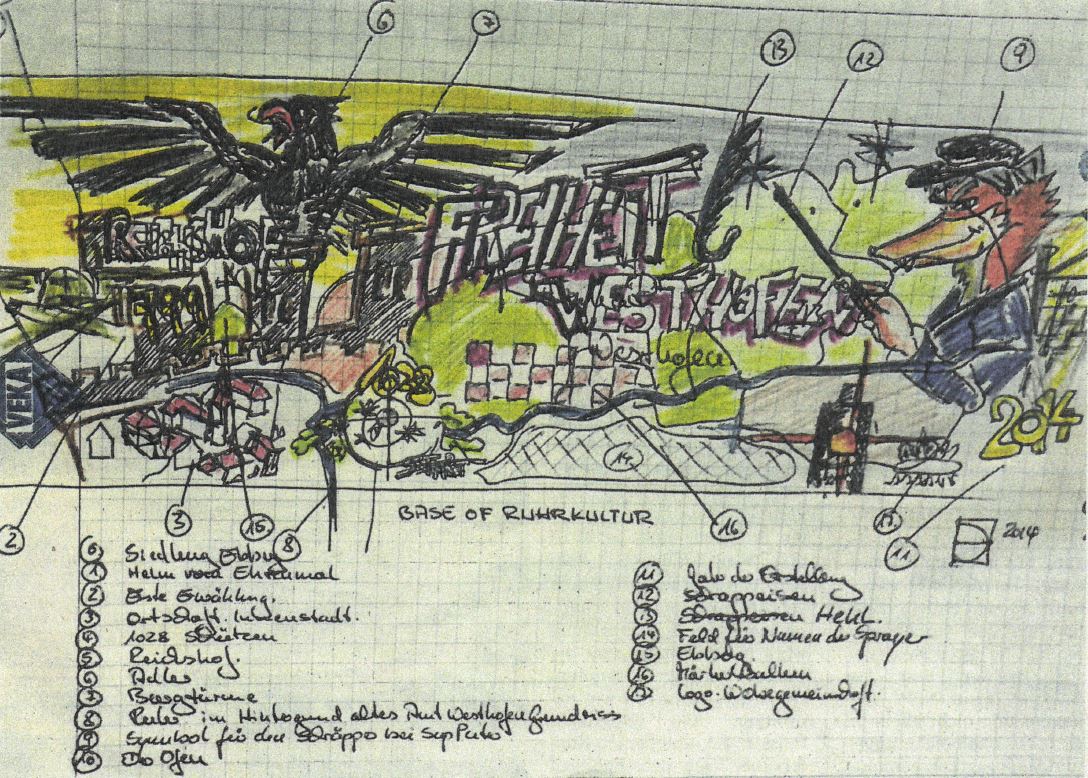 6
7
13
12
9
REICHSHOF
1799
FREIHEIT
WESTHOFEN
Westhofen
1028
VEKA
2014
14
2
3
15
8
16
17
11
BASE OF RUHRKULTUR
2014
0 Siedlung Ebberg
1 Helm vom Ehrenmal
2 Erste Erwähnung.
3 Ortschaft. Innenstadt.
4 1028 Schützen
5 Reichshof.
6 Adler
7 Burgtürme
8 Ruhr im Hintergrund altes Amt Westhofen Grundriss
9 Symbol für den
10 Der Ofen
11 Jahr der Erstellung
12 Schrappeisen
13 Hehl.
14 Feld für Namen der Sprayer
15 Ebberg
16
17 Logo.